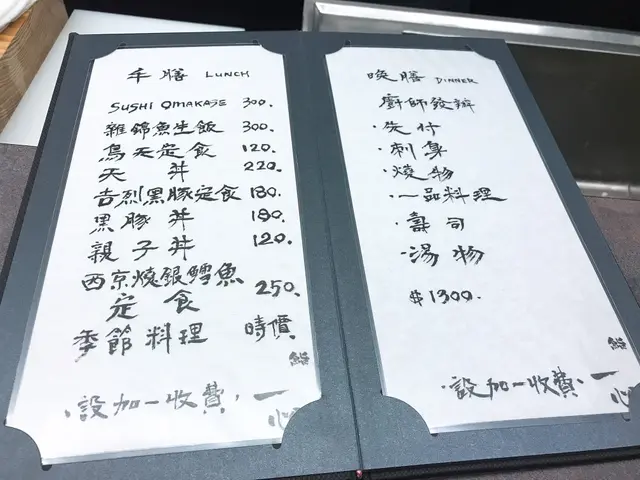 午膳 LUNCH
SUSHI OMAKASE 300.
雜錦魚生飯 300.
烏天定食 120.
天丼 220.
吉烈黑豚定食 180.
黑豚丼 180.
親子丼 120.
西京燒銀鱈魚
定食 250.
季節料理 時價
設加一收費，
一心
鮨
晚膳 DINNER
廚師發辦
·先付
·刺身
·燒物
·一品料理
·壽司
·湯物
$1300.
鮨
·設加一收費·
一心